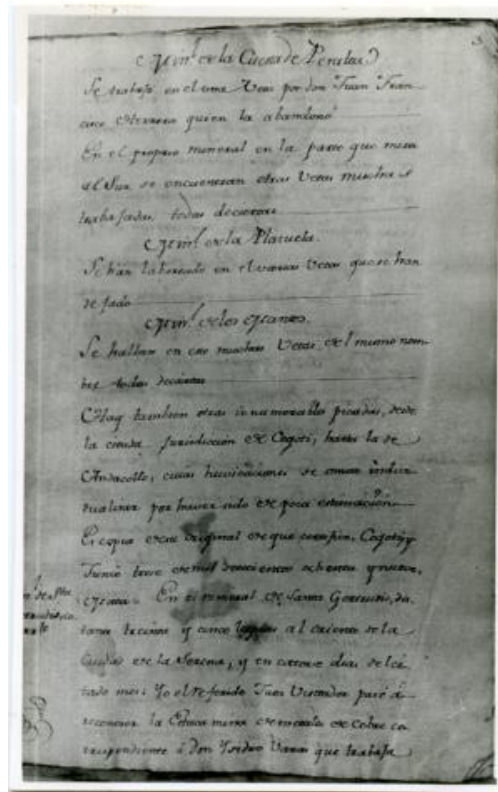 Min.l de la Cuesta de Peralta
Se trabajó en el una Veta por don Juan Fran
cisco Herrera quien la abandonó
En el propio mineral en la parte que mira
al Sur se encuentran otras Vetas muchas
trabajadas, todas desiertas
Min.l de la Plazuela.
Se han laboreado en el varias Vetas que se han
dejado
Min.l de los
Se hallan en este muchas Vetas del mismo nom
bre todas desiertas
Hay tambien otras innumerables picadas, desde
la citada jurisdiccion de Cogoti, hasta la de
Andacollo, cuias se omite indivi
dualizar por haver sido de poca estimación
Es copia de su original de que certifico. Cogoti y
Junio trece de mil setecientos ochenta y nueve.
En el mineral de Santa Gertrudis, dis
tante treinta y cinco leguas al oriente de la
Ciudad de la Serena, y en catorce dias del ci
tado mes: Yo el referido Juez Visitador pasé á
reconocer la Estaca mina de metales de Cobre co
rrespondiente á Don Ysidro Varas que trabaja